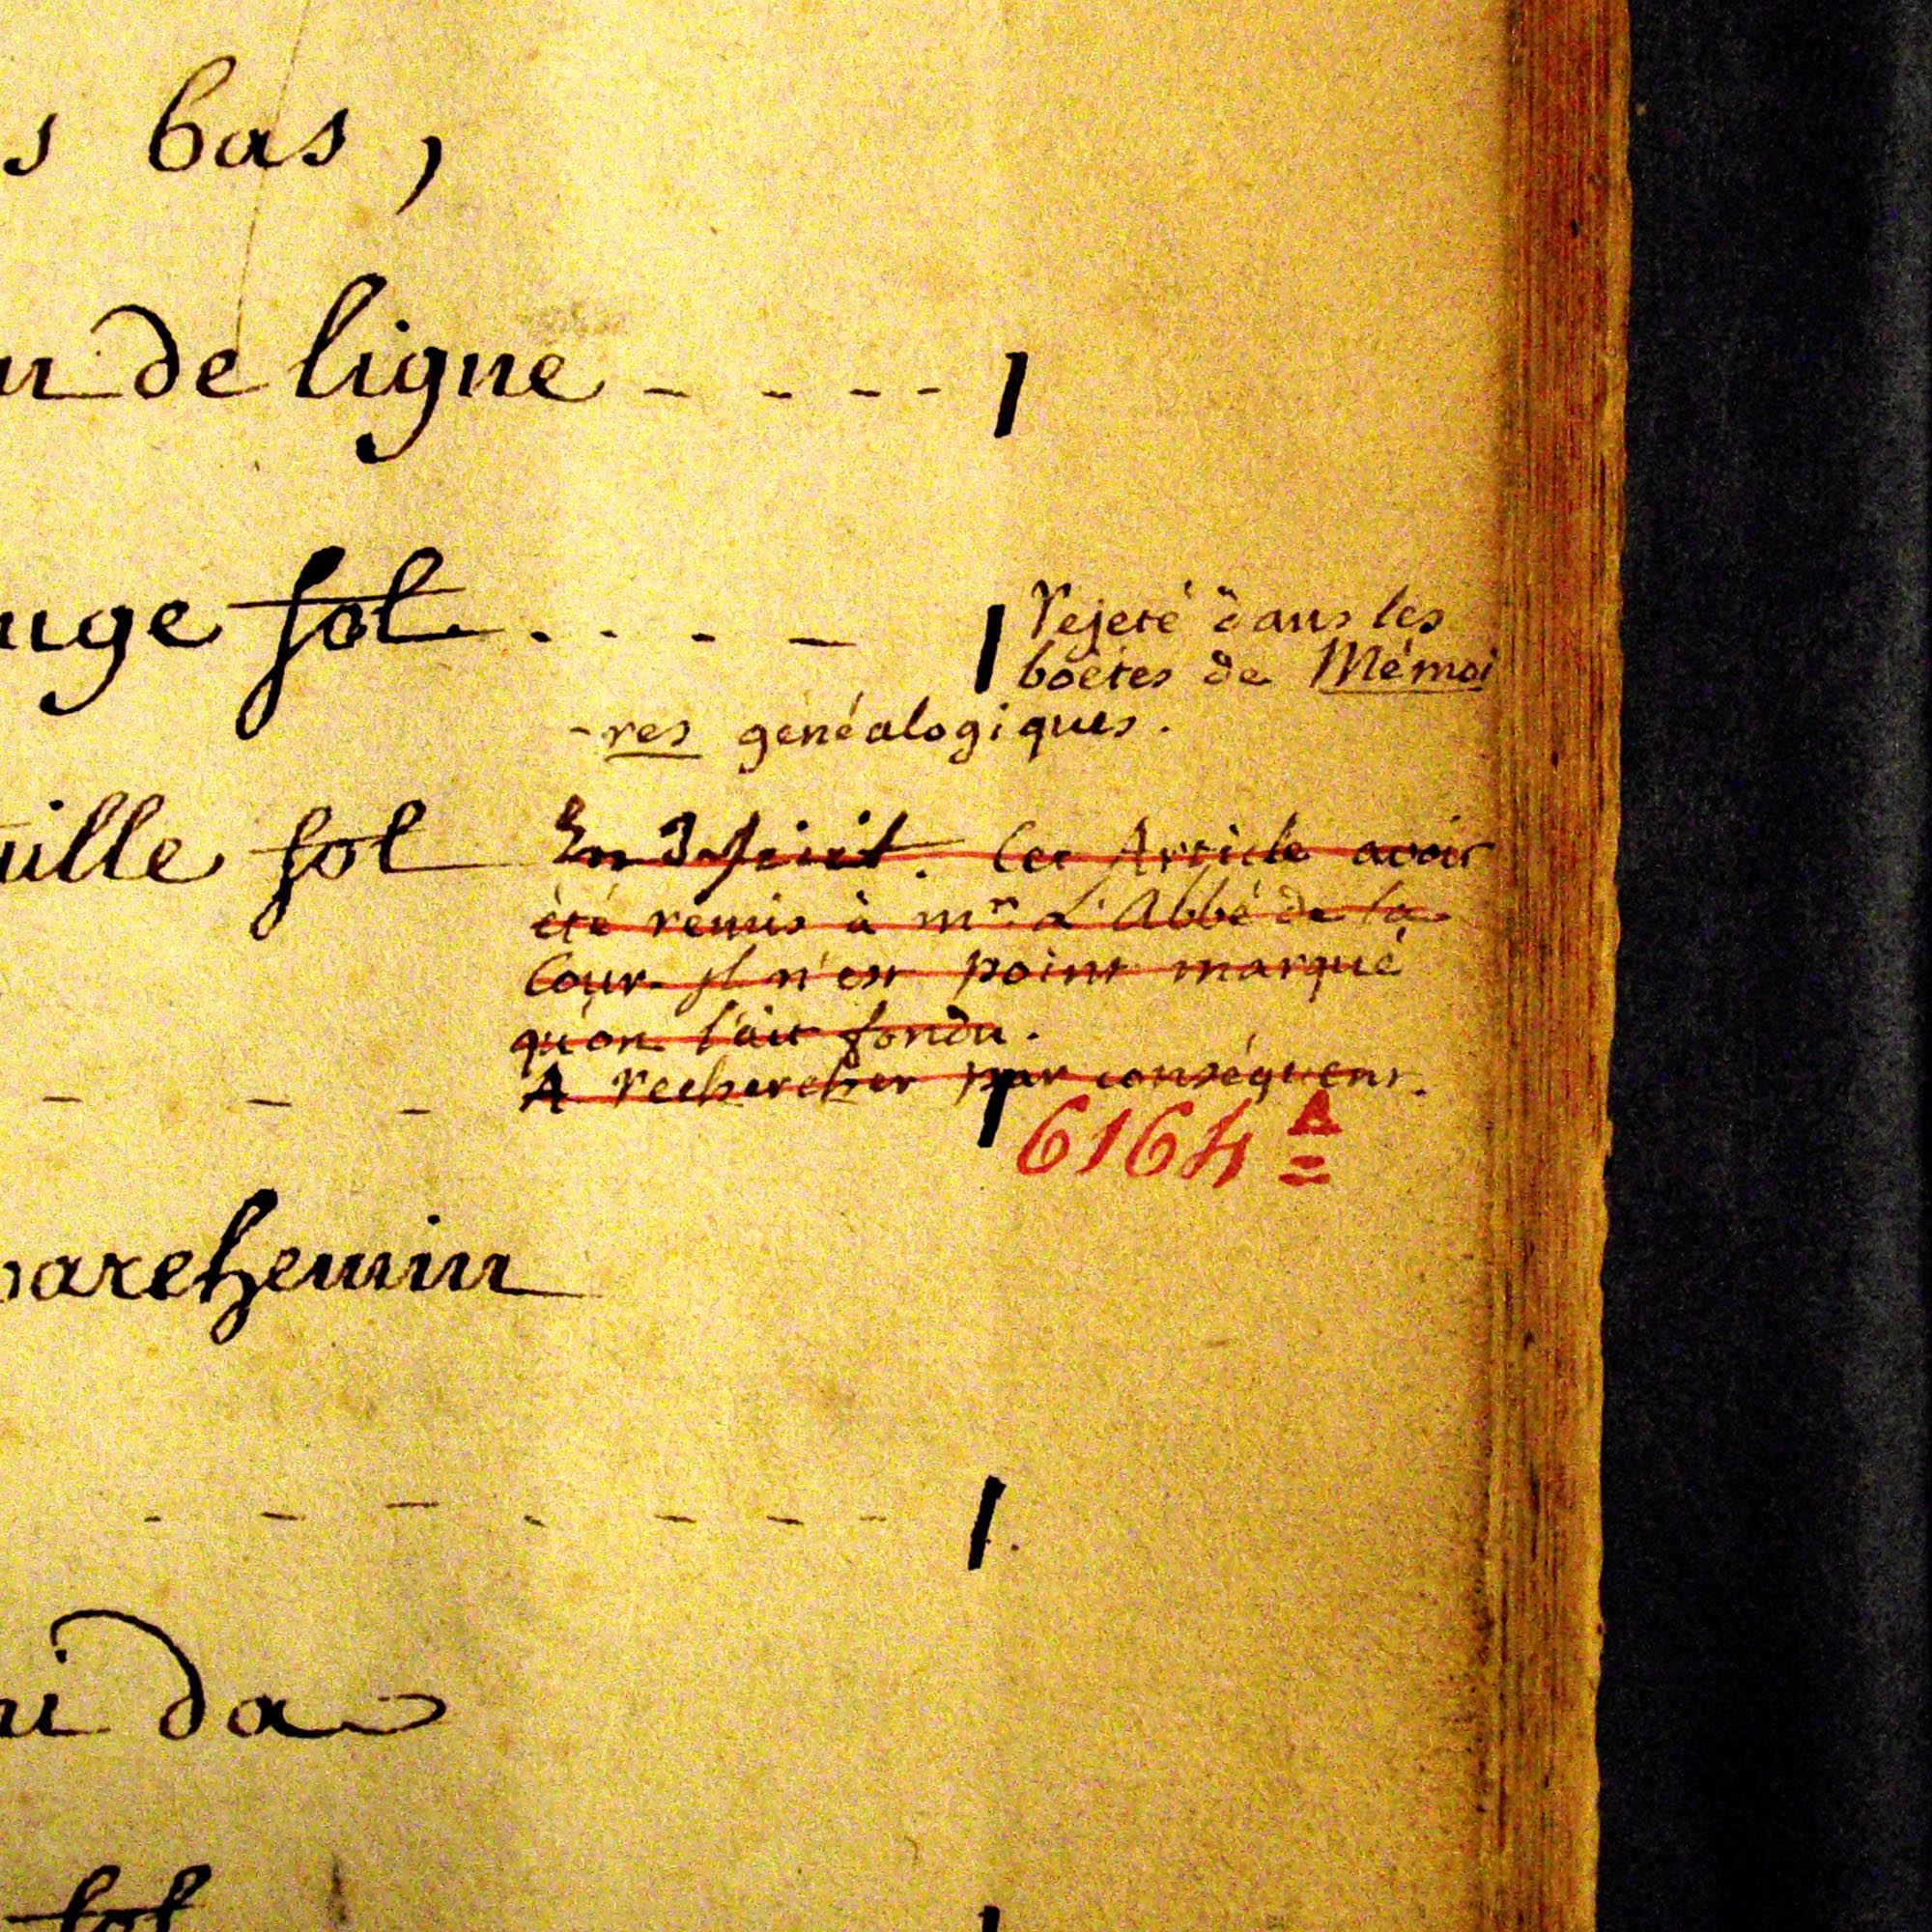 s bas,
u de ligne - - - - - 1
uge fol. . . . - - 1 rejeté dans les
boëtes de Mémoi
-res généalogiques.
uille fol En Déficit. Cet Article avoit
été remis à mr. L'Abbé de la
Cour. Il n'est point marqué
qu'on l'ait fondu.
A rechercher par conséquent.
- - - 1 6164 A =
parchemin
- - - - - - - 1.
ui da
fol 1